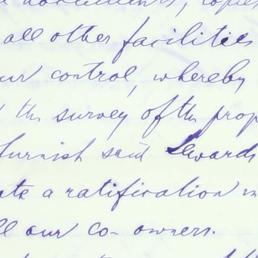 documents, copies
all other facilities
our control, whereby
the survey of the prop
furnish said Sewards
a ratification
our co-owners.